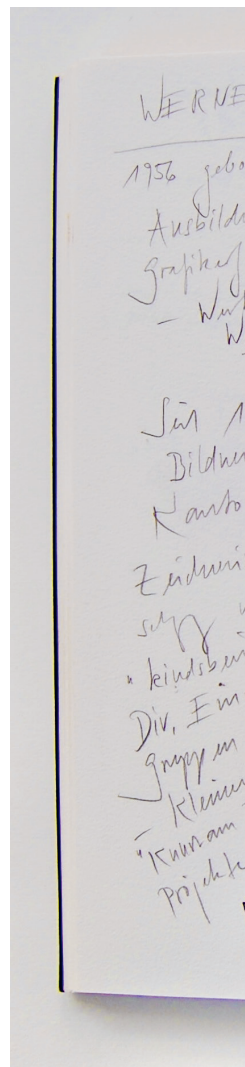 WERNE
1956 gebo
Ausbildu
Grafiker
– Wer
W
Seit 1
Bildner
Kanto
Zeichneri
"kindsbei
Div. Ein
gruppen
– kleiner
Projekte